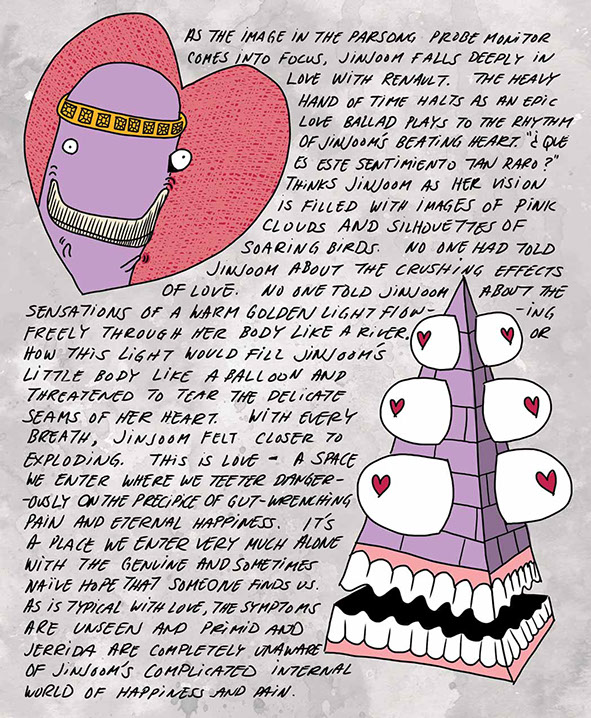 AS THE IMAGE IN THE PARSONG PROBE MONITOR
COMES INTO FOCUS, JINJOOM FALLS DEEPLY IN
LOVE WITH RENAULT. THE HEAVY
HAND OF TIME HALTS AS AN EPIC
LOVE BALLAD PLAYS TO THE RHYTHM
OF JINJOOM'S BEATING HEART. "¿QUE
ES ESTE SENTIMIENTO TAN RARO?"
THINKS JINJOOM AS HER VISION
IS FILLED WITH IMAGES OF PINK
CLOUDS AND SILHOUETTES OF
SOARING BIRDS. NO ONE HAD TOLD
JINJOOM ABOUT THE CRUSHING EFFECTS
OF LOVE. NO ONE TOLD JINJOOM ABOUT THE
SENSATIONS OF A WARM GOLDEN LIGHT FLOW- -ING
FREELY THROUGH HER BODY LIKE A RIVER. OR
HOW THIS LIGHT WOULD FILL JINJOOM'S
LITTLE BODY LIKE A BALLOON AND
THREATENED TO TEAR THE DELICATE
SEAMS OF HER HEART. WITH EVERY
BREATH, JINJOOM FELT CLOSER TO
EXPLODING. THIS IS LOVE - A SPACE
WE ENTER WHERE WE TEETER DANGER-
-OUSLY ON THE PRECIPICE OF GUT-WRENCHING
PAIN AND ETERNAL HAPPINESS. IT'S
A PLACE WE ENTER VERY MUCH ALONE
WITH THE GENUINE AND SOMETIMES
NAÏVE HOPE THAT SOMEONE FINDS US.
AS IS TYPICAL WITH LOVE, THE SYMPTOMS
ARE UNSEEN AND PRIMID AND
JERRIDA ARE COMPLETELY UNAWARE
OF JINJOOM'S COMPLICATED INTERNAL
WORLD OF HAPPINESS AND PAIN.